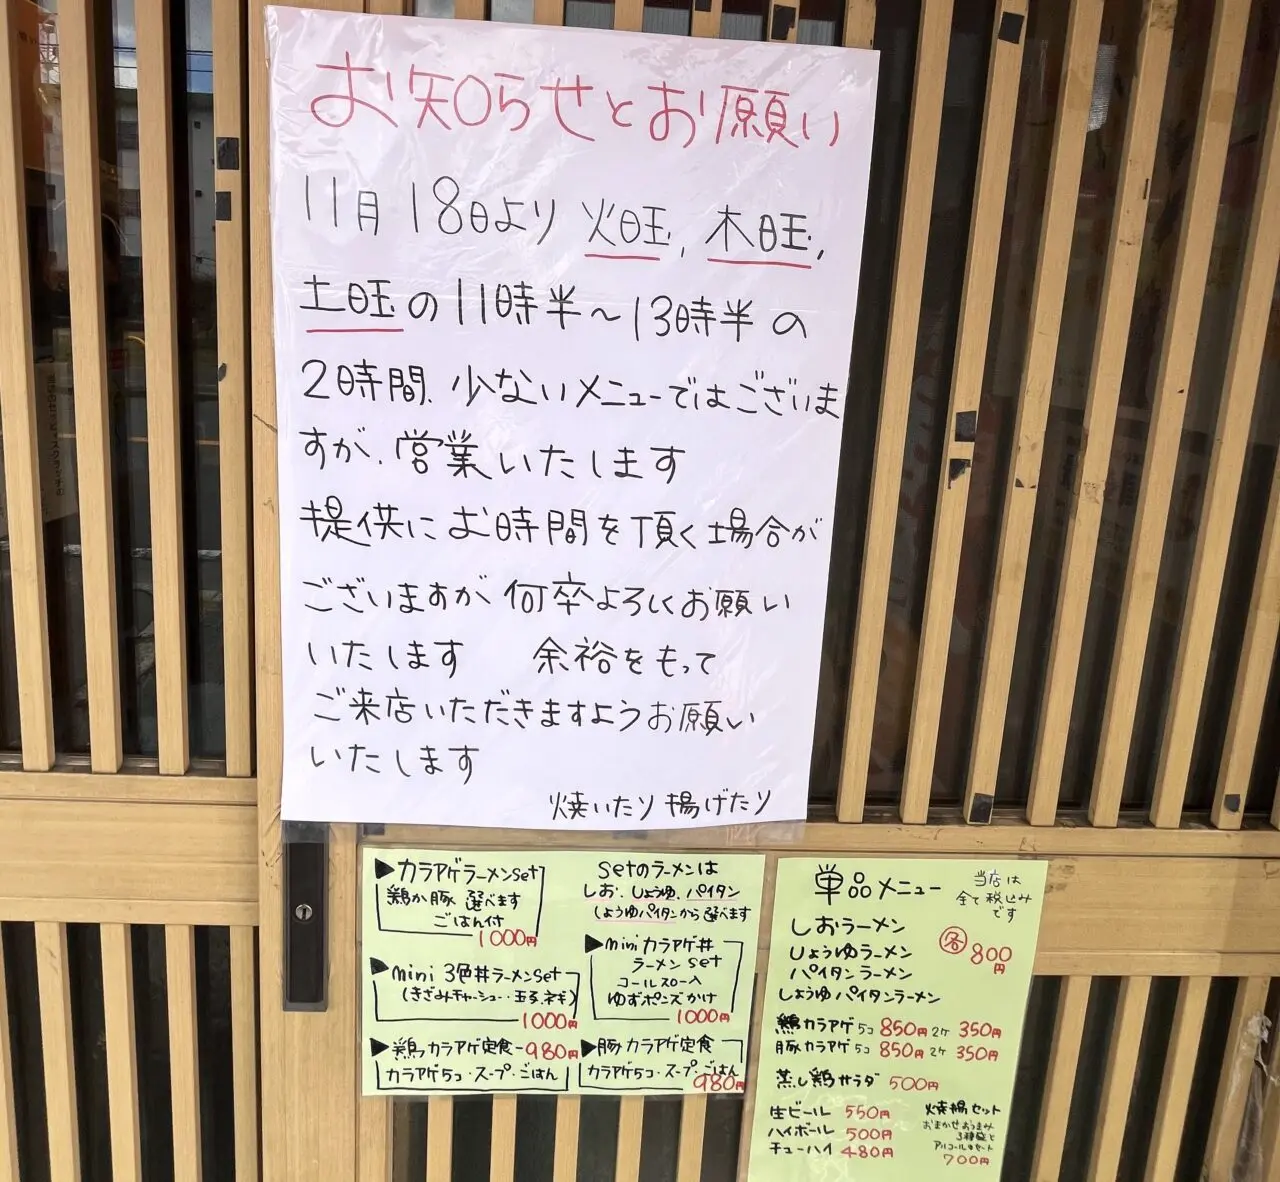 お知らせとお願い
11月18日より火旺,木旺,
土旺の11時半〜13時半の
2時間、少ないメニューではございま
すが、営業いたします
提供にお時間を頂く場合が
ございますが何卒よろしくお願い
いたします 余裕をもって
ご来店いただきますようお願い
いたします
焼いたり揚げたり
▶カラアゲラーメンset
鶏か豚 選べます
ごはん付
1000円
▶mini 3色丼ラーメンset
(きざみチャーシュー・玉子・ネギ)
1000円
▶鶏カラアゲ定食-980円
カラアゲ5コ・スープ・ごはん
setのラーメンは
しお、しょうゆ、パイタン
しょうゆパイタンから選べます
▶miniカラアゲ丼
ラーメンset
コールスロー入
ゆずポンズかけ
1000円
▶豚カラアゲ定食
カラアゲ5コ・スープ・ごはん
980円
単品メニュー
当店は
全て税込み
です
しおラーメン
しょうゆラーメン
パイタンラーメン
しょうゆパイタンラーメン
各800円
鶏カラアゲ5コ850円2ケ350円
豚カラアゲ5コ850円2ケ350円
蒸し鶏サラダ500円
生ビール 550円
ハイボール 500円
チューハイ 480円
焼揚セット
おまかせおつまみ
3種盛と
アルコールのセット
700円